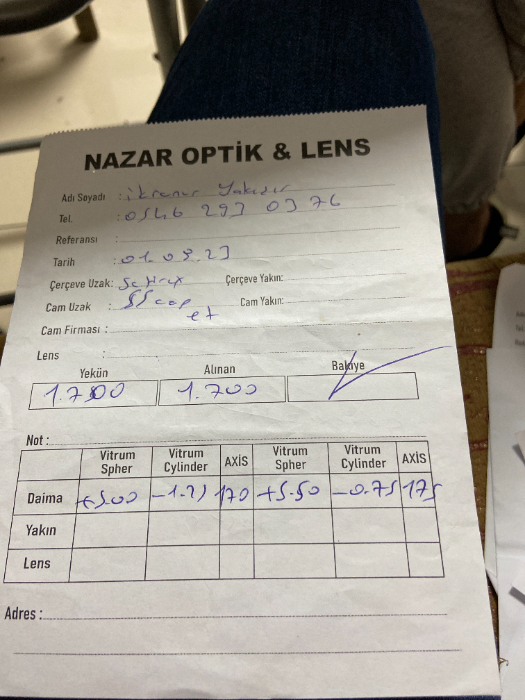 NAZAR OPTİK & LENS
Adı Soyadı : ikranur
Tel. : 0546 293 03 76
Referansı :
Tarih : 01.09.23
Çerçeve Uzak: Çerçeve Yakın:
Cam Uzak : Cam Yakın:
Cam Firması :
Lens :
Yekün Alınan Bakiye
1.700 1.700
Not :
Vitrum Spher Vitrum Cylinder AXİS Vitrum Spher Vitrum Cylinder AXİS
Daima +5.00 -1.25 170 +5.50 -0.75 175
Yakın
Lens
Adres :